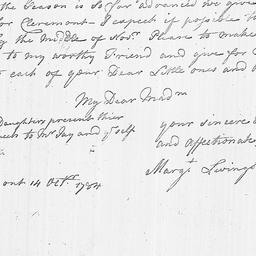 the Season is so far advanced we give
for Clermont - I expect if possible t
by the Middle of Novr. Please to make
to my worthy Friend and give for
to each of your Dear Little ones and
My Dear Madm
Daughters present their
to Mr Jay and yr self
your sincere
and affectionate
Margt Livings
ont 14 Octr. 1784